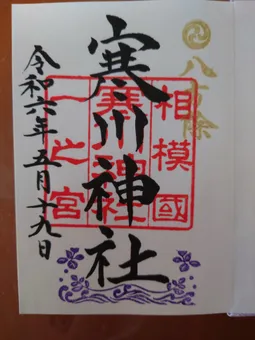 八方除
相模國
寒川神社
寒川神社
一之宮
令和六年五月十九日